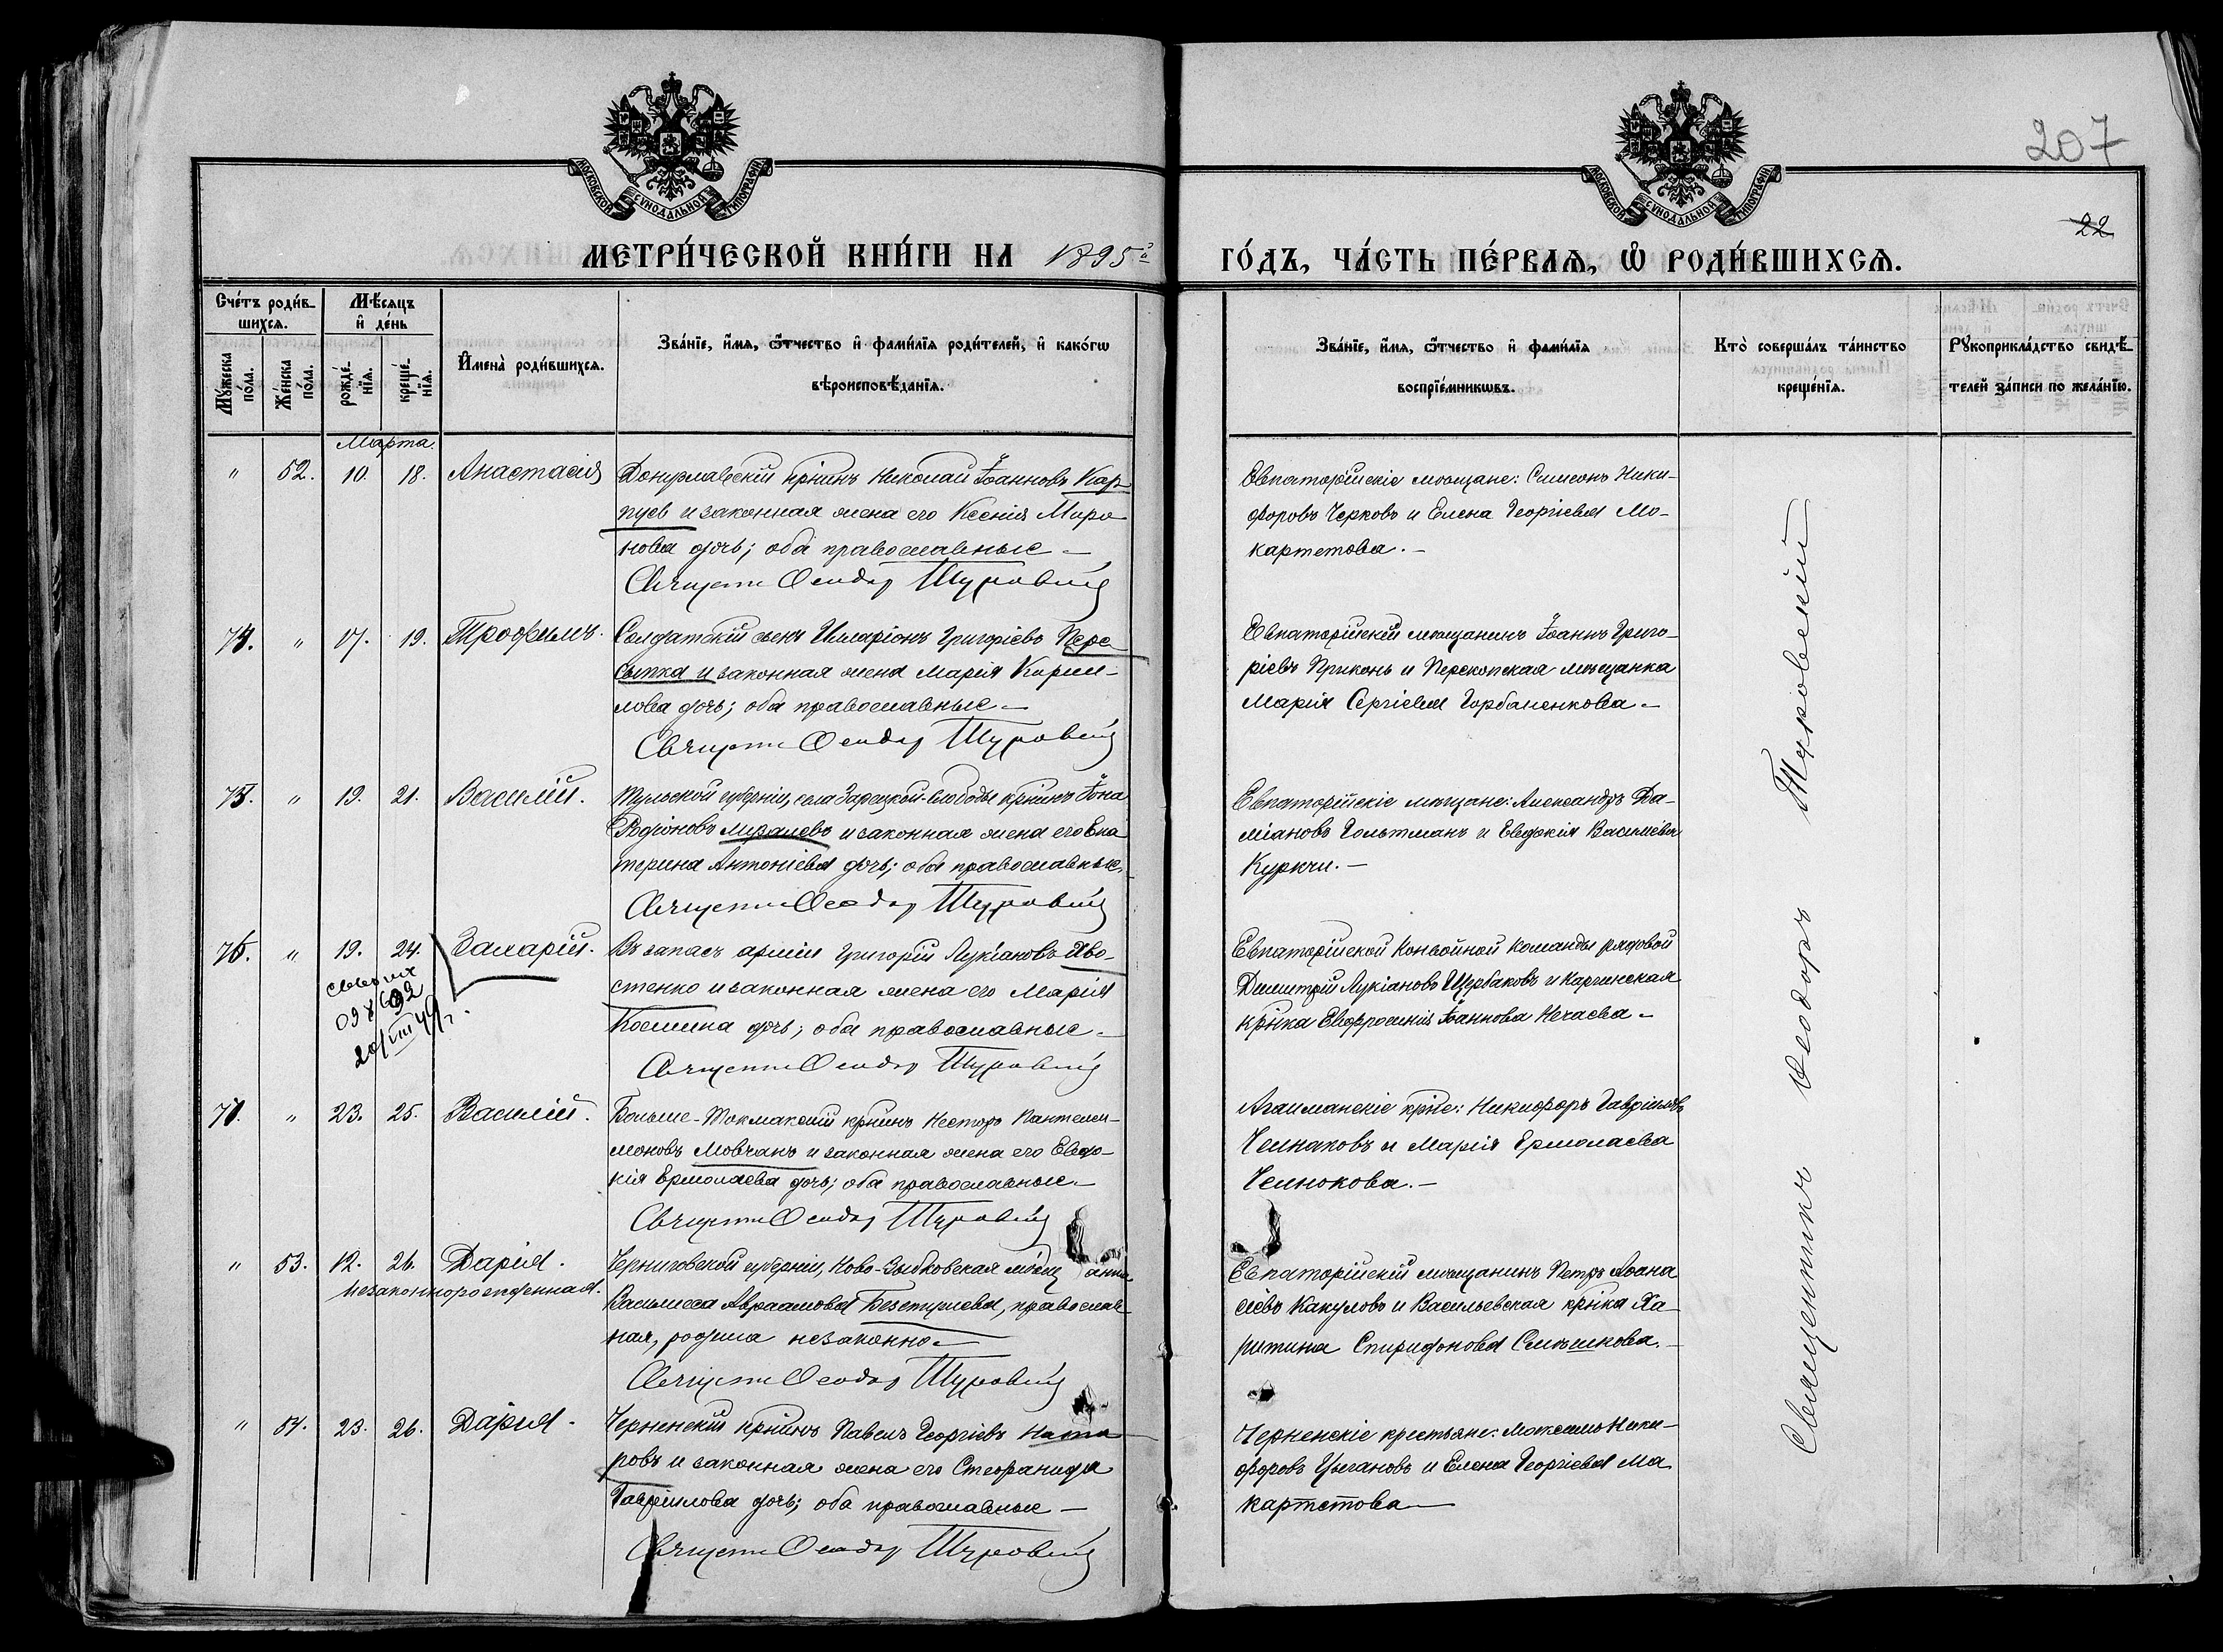 207
22
МОСКОВСКОЙ СѴНОДАЛЬНОЙ ТИПОГРАФІИ
МОСКОВСКОЙ СѴНОДАЛЬНОЙ ТИПОГРАФІИ
МЕТРИ́ЧЕСКОЙ КНИ́ГИ НА 1895й
ГО́ДЪ, ЧА́СТЬ ПЕ́РВАѦ, Ѡ҆ РОДИ́ВШИХСѦ.
Сче́тъ роди́в-
шихсѧ.
Мꙋ́жеска
пола.
Же́нска
по́ла.
Мѣ́сяцъ
и҆ де́нь
рожде́-
нїѧ.
креще́-
нїѧ.
И҆мена̀ роди́вшихсѧ.
Зва́нїе, и҆́мѧ, ѻ҆́тчество и҆ фами́лїѧ роди́телей, и҆ како́гѡ
вѣроисповѣ́данїѧ.
Зва́нїе, и҆́мѧ, ѻ҆́тчество и҆ фами́лїѧ
воспрїе́мникѡвъ.
Кто̀ соверша́лъ та́инство
креще́нїѧ.
Рꙋкоприкла́дство свидѣ́-
телей за́писи по жела́нїю.
Марта.
" 52. 10. 18. Анастасія
Донузлавскій крнинъ Николай Іоанновъ Кар
пусь и законная жена его Ксенія Миро
нова дочь; оба православные –
Священн Ѳеодор Туровскій
Евпаторійскіе мѣщане: Симеонъ Ники-
форовъ Черковъ и Елена Георгіева Мо-
картетова. –
74. " 17. 19. Трофимъ.
Солдатскій сынъ Илларіонъ Григоріевъ Пере
сыпка и законная жена Марія Кирил-
лова дочь; оба православные –
Священн Ѳеодор Туровскій
Евпаторійскій мѣщанинъ Іоаннъ Григо-
ріевъ Приконь и Перекопская мѣщанка
Марія Сергіева Горбаненкова –
75. " 19. 21. Василій.
Тульской губерніи, села Зарецкой-слободы крнинъ Іона
Родіоновъ и законная жена его Ека
терина Антоніева дочь; оба православные.
Священн Ѳеодор Туровскій
Евпаторійскіе мѣщане: Александръ Да-
міановъ Гольтманъ и Евдокія Васильева
Куркчи. –
76. " 19. 24. Захарій.
20/VIII 44 г.
Въ запасѣ арміи Григорій Лукіановъ Хво-
стенко и законная жена его Марія
Косьмина дочь; оба православные –
Священн Ѳеодор Туровскій
Евпаторійской конвойной команды рядовой
Димитрій Лукіановъ Щербаковъ и Каргинская
крнка Евфросинія Іоаннова Нечаева –
77. " 23. 25. Василій.
Больше-Токмакскій крнинъ Несторъ Пантелеи-
моновъ Мовчанъ и законная жена его Евдо-
кія Ермолаева дочь; оба православные –
Священн Ѳеодор Туровскій
Агайманскіе крне: Никифоръ Гавріиловъ
Челнаковъ и Марія Ермолаева
Челнокова. –
" 53. 12. 26. Дарія.
незаконнорожденная.
Черниговской губерніи, Ново-Зыбковская мѣщ анка
Васильисса Авраамова православ
ная, родила незаконно –
Священн Ѳеодор Туровскій
Евпаторійскій мѣщанинъ Петръ Аѳана
сіевъ Какуловъ и Васильевская крнка Ха-
ритина Спиридонова –
" 54. 23. 26. Дарія.
Черненскій крнинъ Павелъ Георгіевъ Ната
ровъ и законная жена его Стефанида
Гавріилова дочь; оба православные –
Священн Ѳеодор Туровскій
Черненскіе крестьяне: Максимъ Ники-
форовъ Цыгановъ и Елена Георгіева Ма
картетова –
Священникъ Ѳеодоръ Туровскій